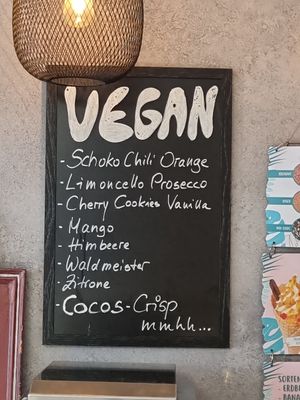 VEGAN
- Schoko Chili Orange
- Limoncello Prosecco
- Cherry Cookies Vanilla
- Mango
- Himbeere
- Waldmeister
- Zitrone
- Cocos - Crisp
mmhh...
SORTEN
ERDB
BANA